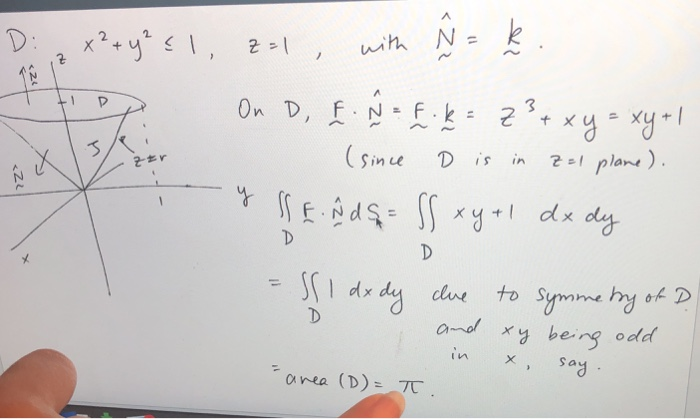 D: x² + y² ≤ 1, z = 1, with N̂ = k.
z
N̂
1 D
On D, F · N̂ = F · k = z³ + xy = xy + 1
S
z = r
(since D is in z=1 plane).
N̂
1
y
∬_D F · N̂ dS = ∬_D xy + 1 dx dy
x
= ∬_D 1 dx dy due to symmetry of D
and xy being odd
in x, say.
= area (D) = π.